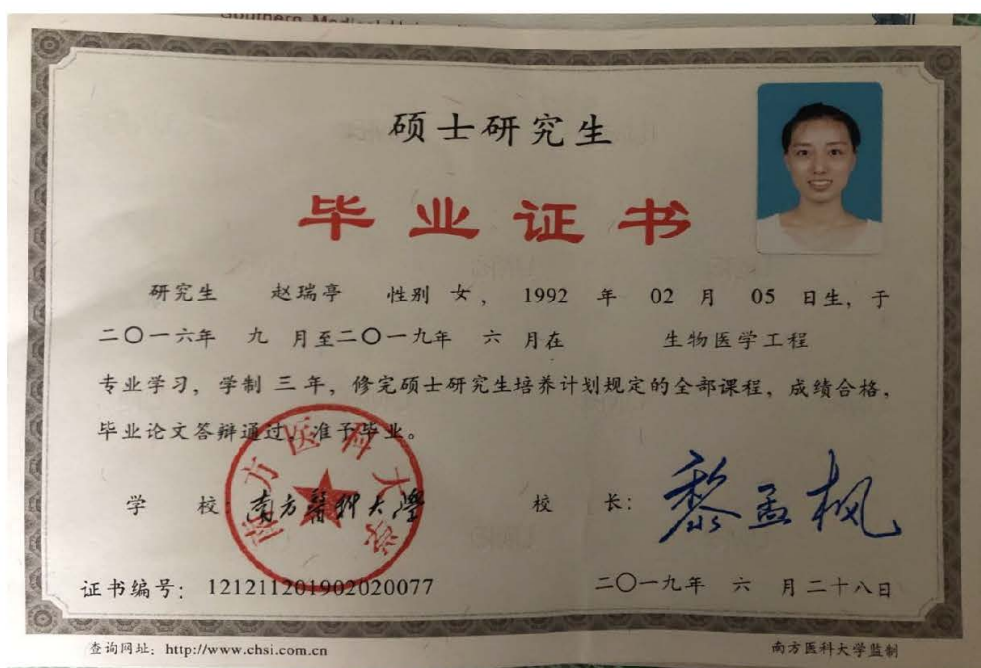 Southern Medical
硕士研究生
毕业证书
研究生 赵瑞亭 性别 女， 1992 年 02 月 05 日生，于
二〇一六年 九 月至二〇一九年 六 月在 生物医学工程
专业学习，学制 三 年，修完硕士研究生培养计划规定的全部课程，成绩合格，
毕业论文答辩通过，准予毕业。
南方医科大学
学 校：南方醫科大學 校 长：黎孟枫
证书编号：121211201902020077 二〇一九年 六 月二十八日
查询网址：http://www.chsi.com.cn 南方医科大学监制